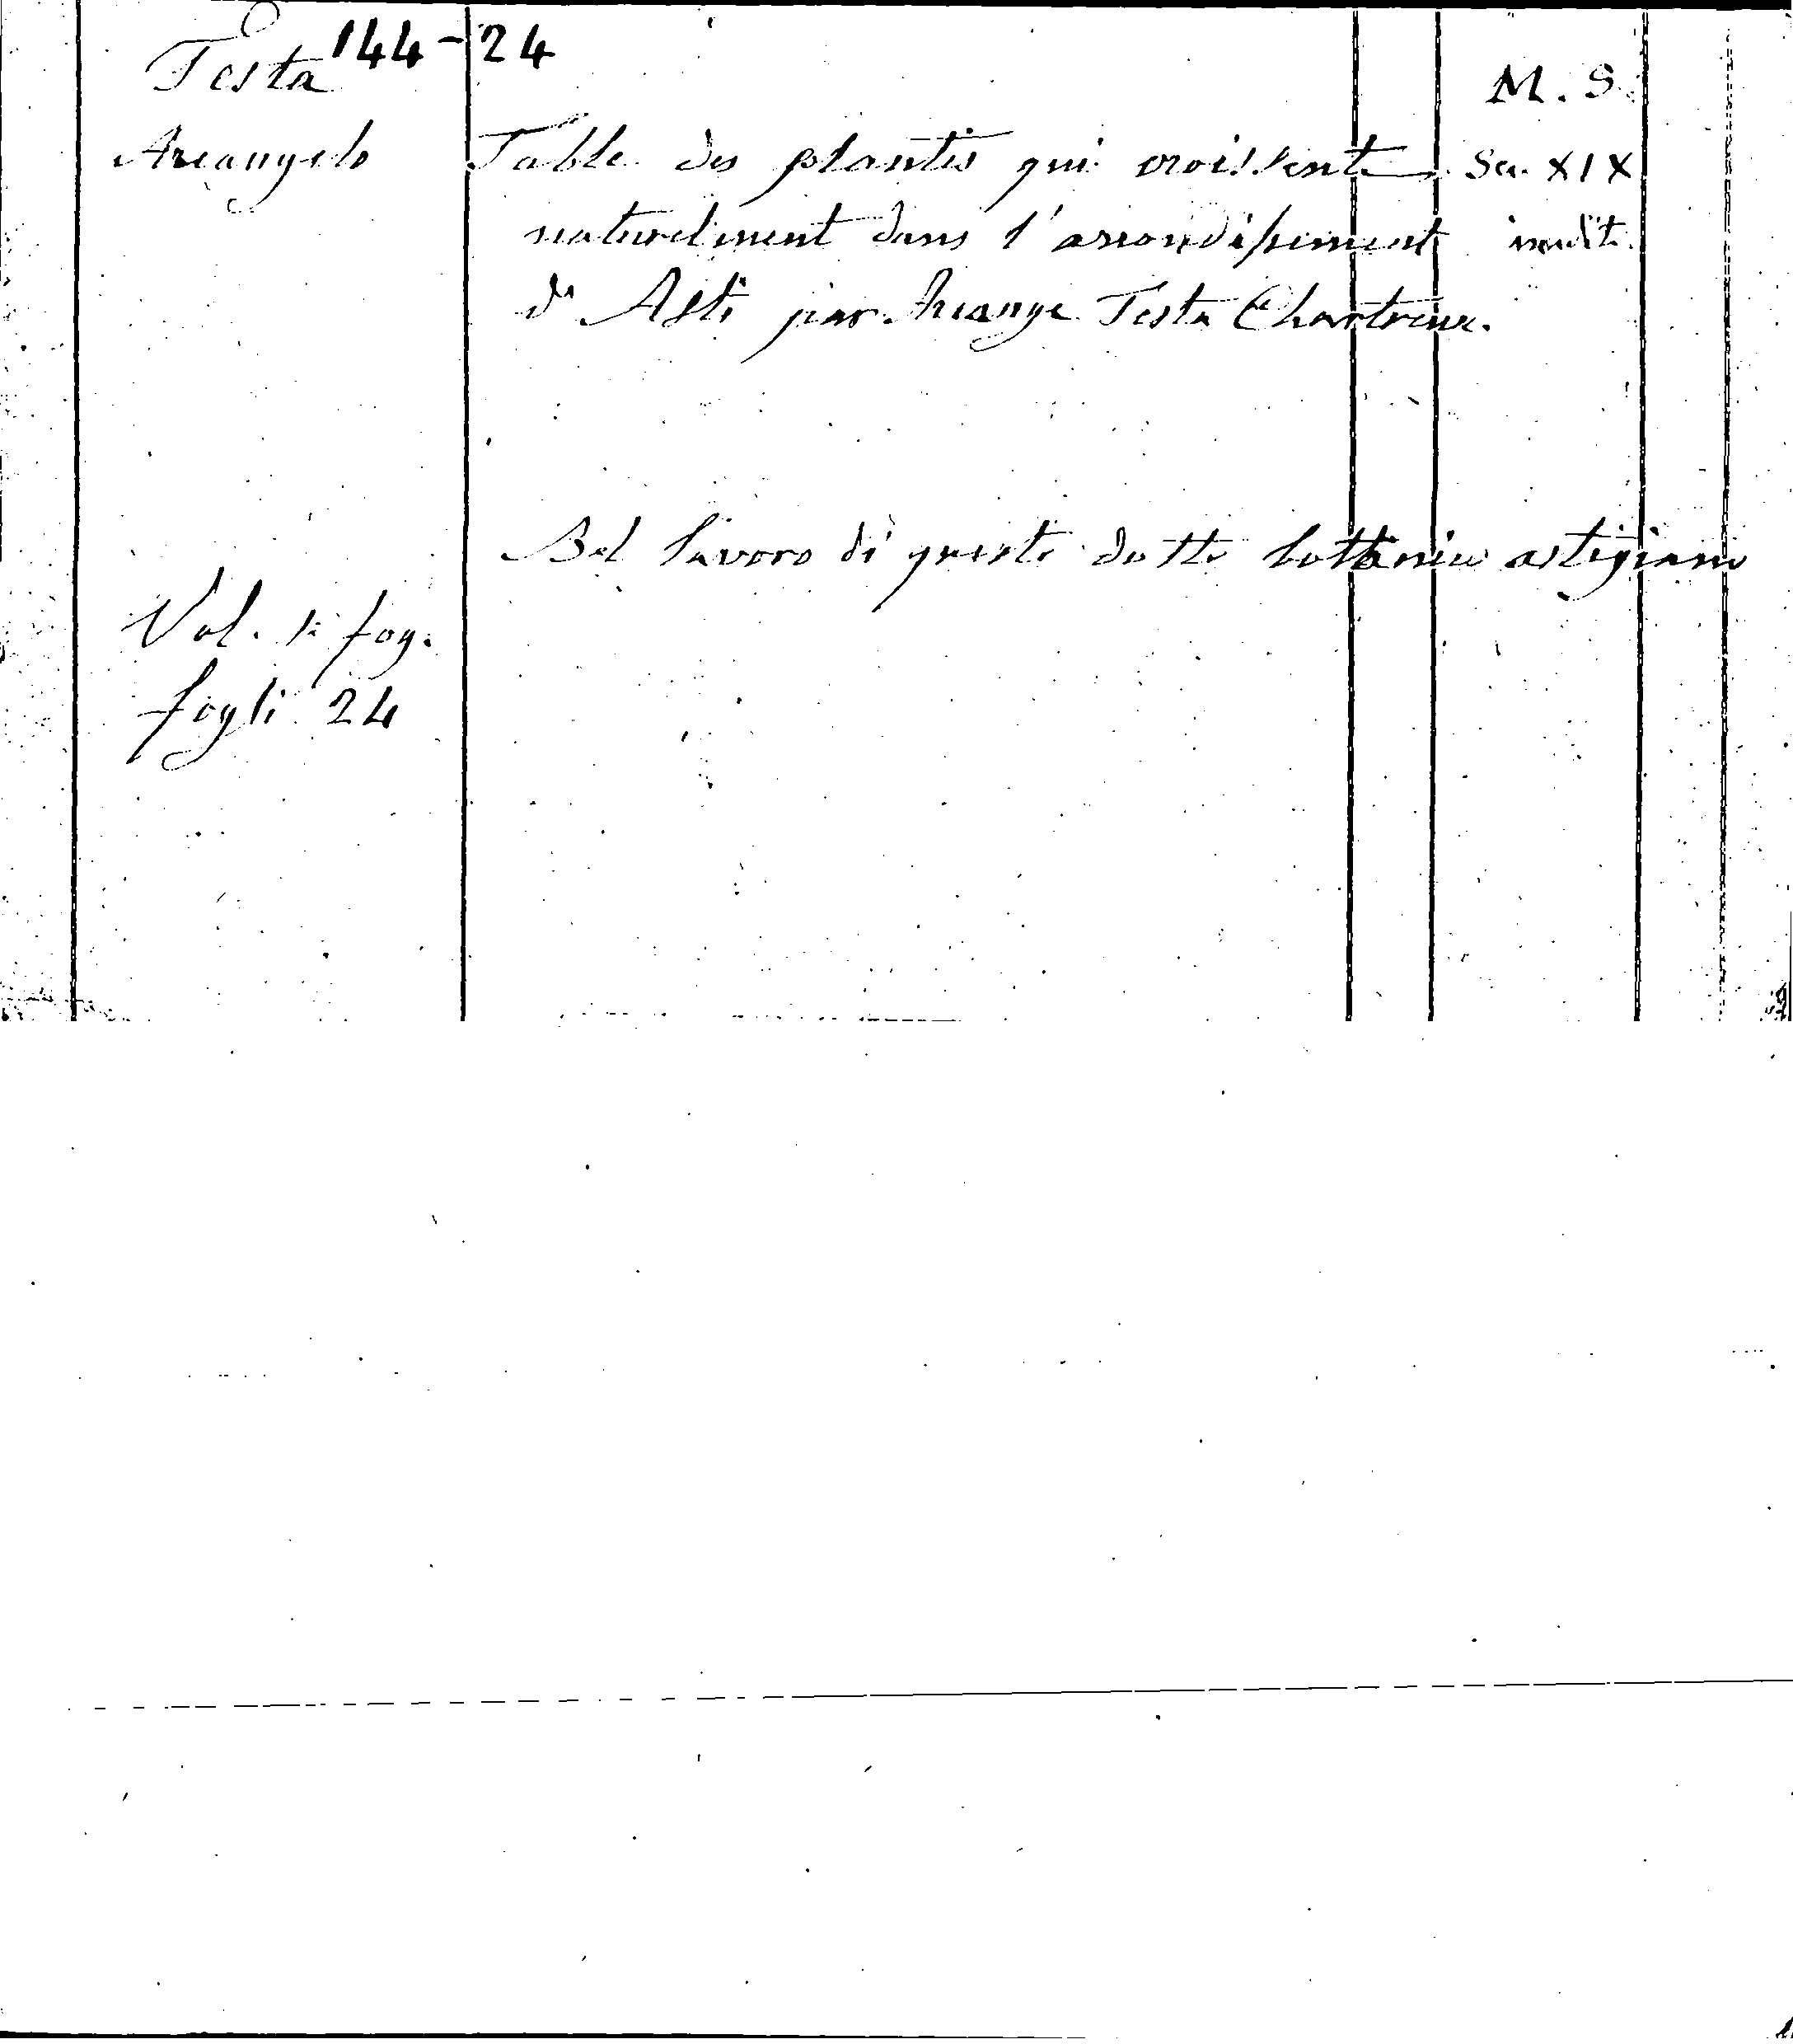 144-24
Testa
M. S.
Arcangelo
Table des plantes qui croissent
Sec. XIX
naturelment dans l'arrondissement
inedito
d'Asti par Arcange Testa Chartreux.
Bel lavoro di questo dotto bottanico astigiano
Vol. 1: fog.
fogli 24